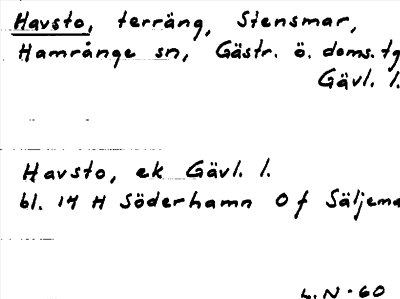 Havsto, terräng, Stensmar,
Hamrånge sn, Gästr. ö. doms.tg
Gävl. l.
Havsto, ek Gävl. l.
bl. 14 H Söderhamn 0 f Säljema
L.N.60